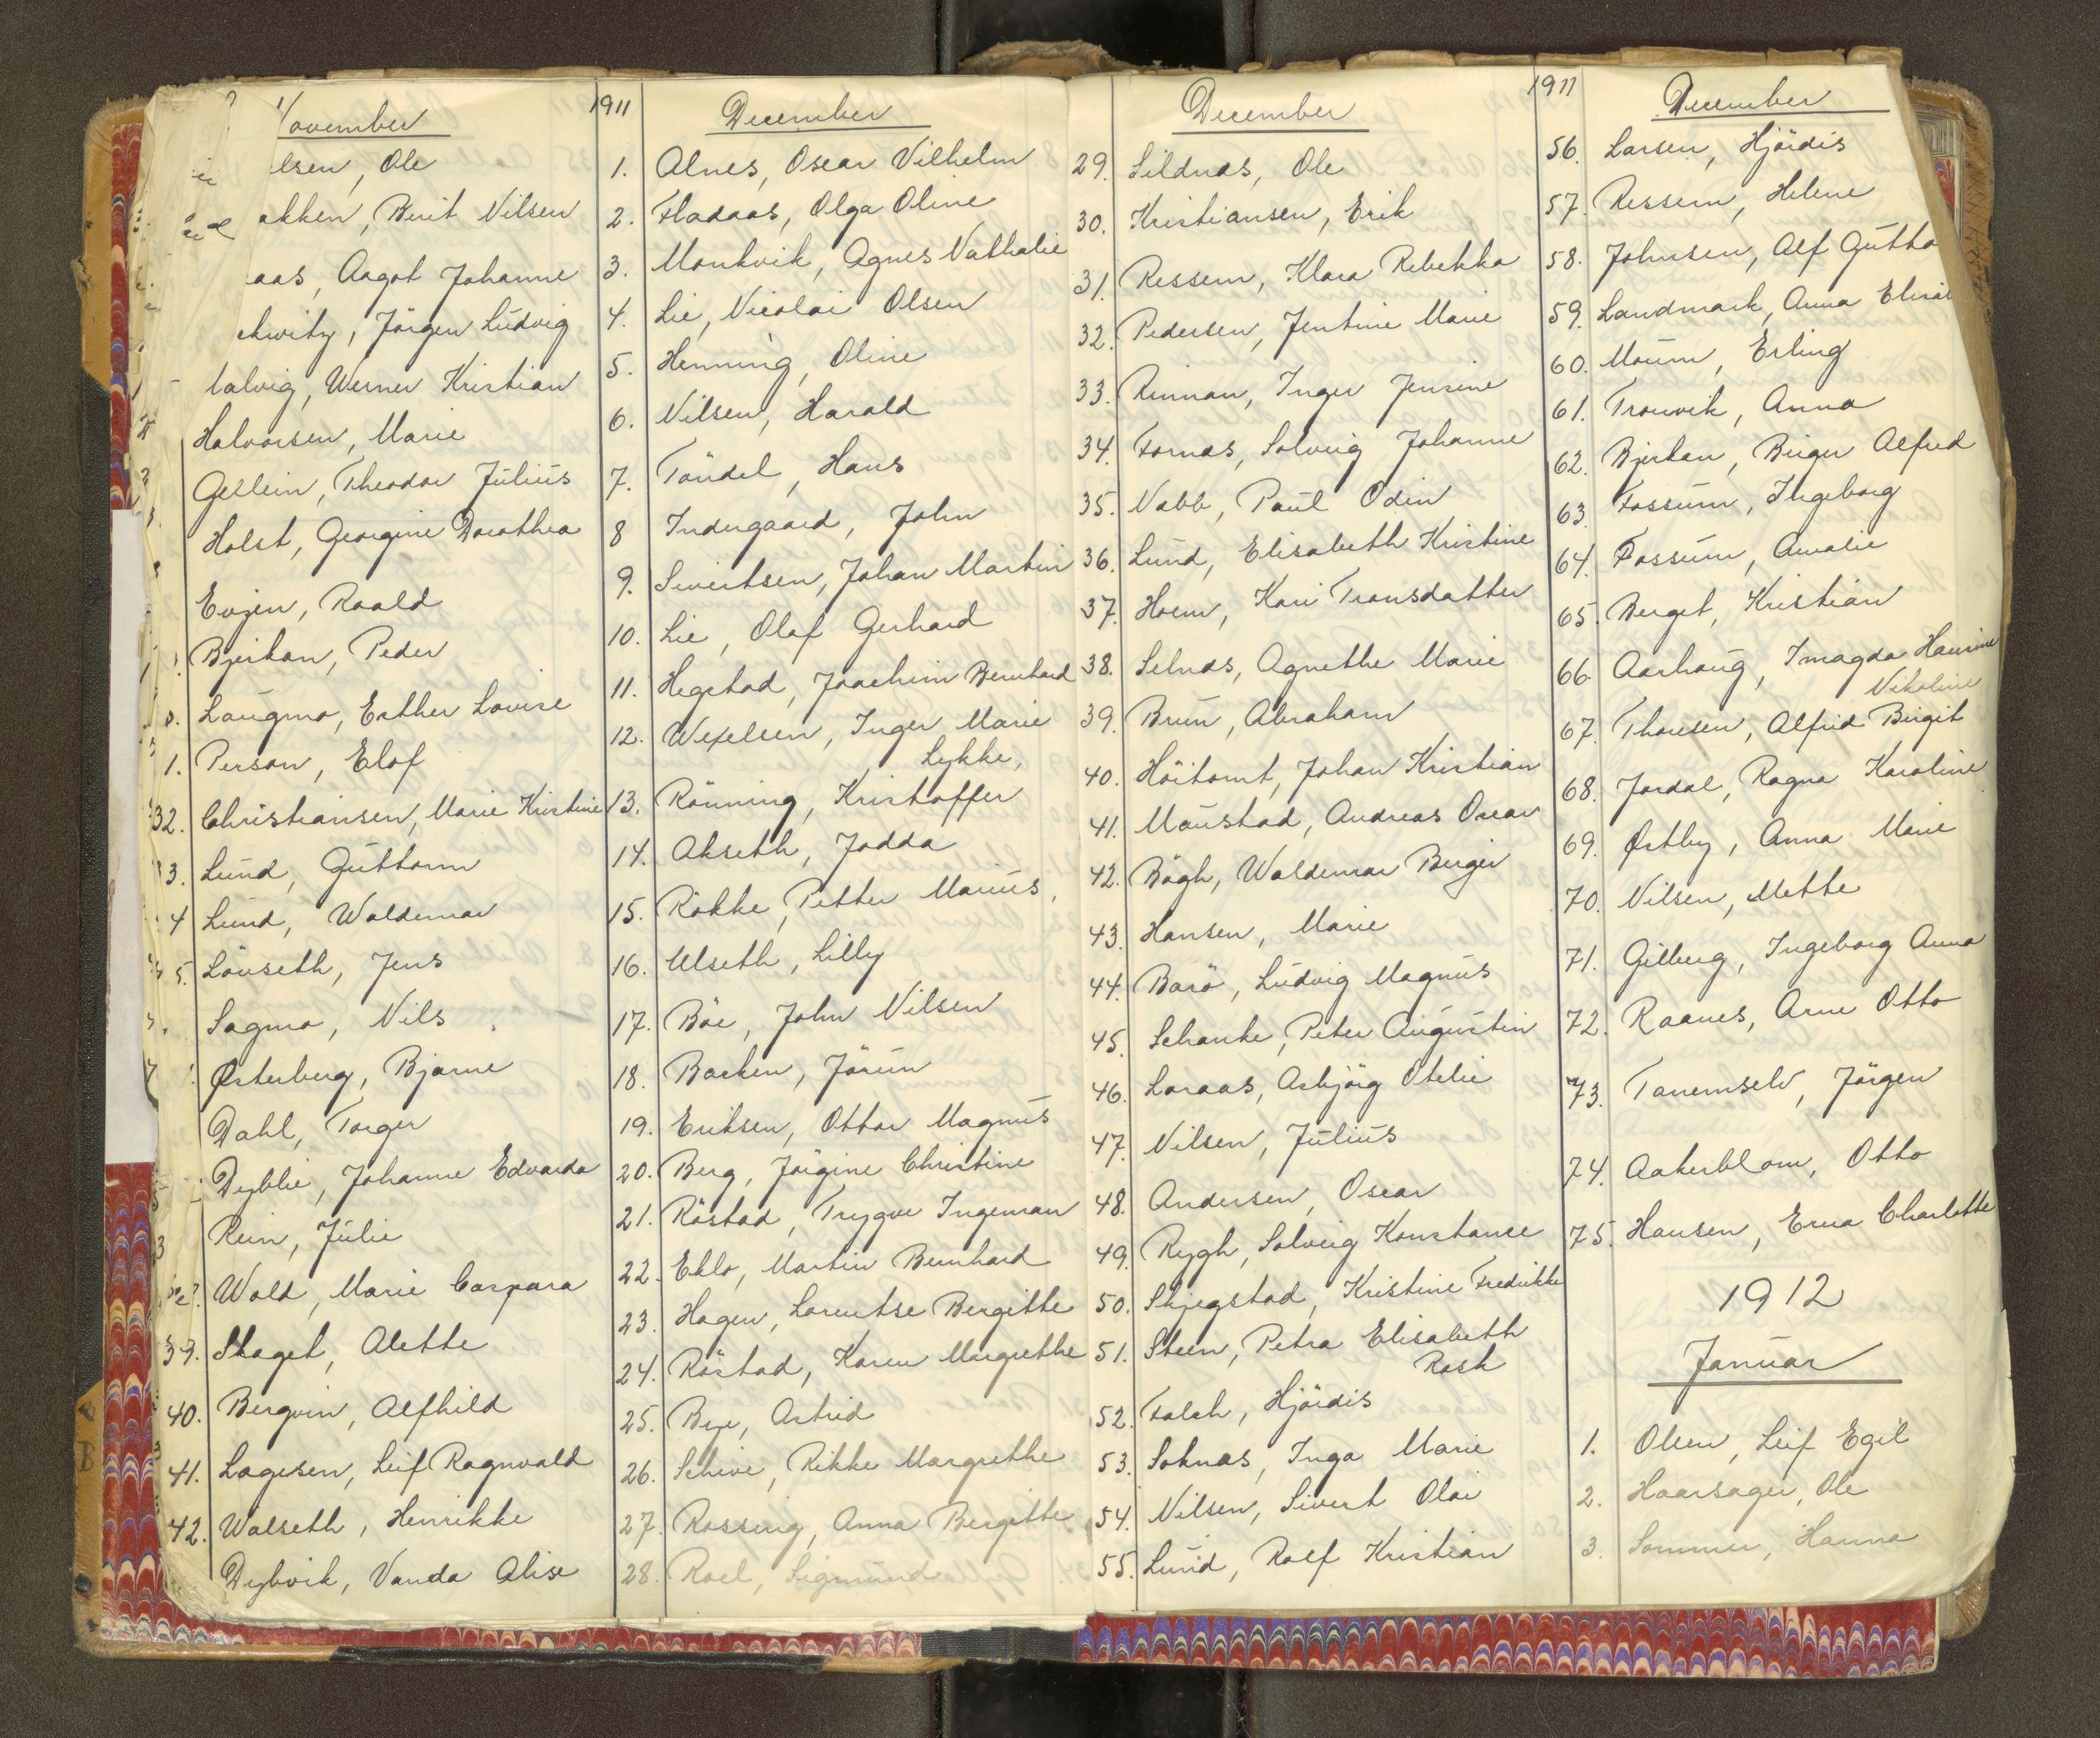 November
1911
lsen, Ole
akken, Berit Nilsen
aas, Aagot Johanne
ckwitz, Jörgen Ludvig
alvig, Werner Kristian
Halvorsen, Marie
Gellein, Theodor Julius
Holst, Georgine Dorothea
Evjen, Roald
Bjerkan, Peder
Laugmo, Esther Lovise
1. Person, Elof
32. Christiansen, Marie Kristine
3. Lund, Guttorm
4 Lund, Waldemar
5. Lönseth, Jens
Sagmo, Nils
Østerberg, Bjarne
Dahl, Torger
Dyblie, Johanne Edvarda
Rein, Julie
Wold, Marie Caspara
39. Skaget, Alette
40. Bergvin, Alfhild
41. Lagesen, Leif Ragnvald
42. Walseth, Henrikke
Dybvik, Vanda Alise
December
1. Alnes, Oscar Vilhelm
2. Fladaas, Olga Oline
3. Monkvik, Agnes Nathalie
4. Lie, Nicolai Olsen
5. Henning, Oline
6. Nilsen, Harald
7. Töndel, Hans
8 Indergaard, John
9. Sivertsen, Johan Martin
10. Lie, Olaf Gerhard
11. Hegstad, Joachim Bernhard
12. Wexelsen, Inger Marie
Lykke,
13. Rönning, Kristoffer
14. Akseth, Jodda
15. Rökke, Petter Marius,
16. Ulseth, Lilly
17. Böe, John Nilsen
18. Backen, Jörun
19. Eriksen, Ottar Magnus
20. Berg, Jörgine Christine
21. Röstad, Trygve Ingeman
22. Eklo, Martin Bernhard
23. Hagen, Lorentse Bergitte
24. Röstad, Karen Margrethe
25. Bye, Astrid
26. Schive, Rikke Margrethe
27. Rossing, Anna Bergitte
28. Roel, Sigmund
December
1911
29. Sildnæs, Ole
30. Kristiansen, Erik
31. Ressem, Klara Rebekka
32. Pedersen, Jentine Marie
33. Rinnan, Inger Jensine
34. Fornæs, Solveig Johanne
35. Nabb, Paul Odin
36. Lund, Elisabeth Kristine
37. Hoem, Kari Tronsdatter
38. Selnæs, Agnethe Marie
39. Brun, Abraham
40. Höitomt, Johan Kristian
41. Maustad, Andreas Oscar
42. Bögh, Waldemar Berger
43. Hansen, Marie
44. Barö, Ludvig Magnus
45. Schanke, Peter Augustin
46. Loraas, Asbjörg Otelie
47. Nilsen, Julius
48. Andersen, Oscar
49. Rygh, Solveig Konstanse
50. Skjegstad, Kristine Fredrikke
51. Steen, Petra Elisabeth
Rosk
52. Falch, Hjördis
53. Soknæs, Inga Marie
54. Nilsen, Sivert Olai
55. Lund, Rolf Kristian
December
56. Larsen, Hjördis
57. Ressem, Helene
58. Johnsen, Alf Gutto
59. Landmark, Anna Elisab
60. Moum, Erling
61. Tronvik, Anna
62. Bjerkan, Birger Alfred
63. Fossum, Ingeborg
64. Fossum, Amalie
65. Berget, Kristian
66. Aarhaug, Imagda Hansine
Nikoline
67. Thoresen, Alfrid Birgit
68. Jordal, Ragna Karoline
69. Østby, Anna Marie
70. Nilsen, Mette
71. Gilberg, Ingeborg Anna
72. Raanes, Arne Otto
73. Tanemselv, Jörgen
74. Aakerblom, Otto
75. Hansen, Erna Charlotte
1912
Januar
1. Olsen, Leif Egil
2. Haarsager, Ole
3. Sommer, Hanna